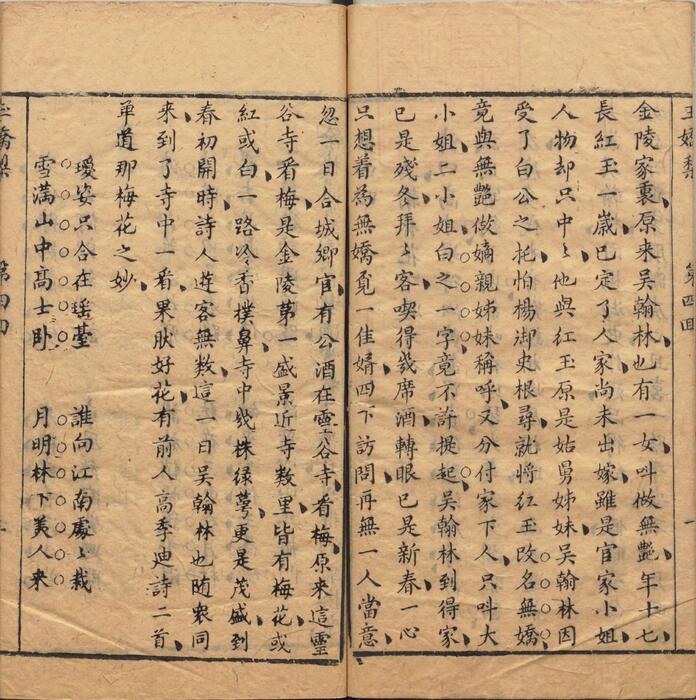 玉嬌梨
第四回
金陵家裏原來吳翰林也有一女叫做無艷年十七
長紅玉一歲已定了人家尚未出嫁雖是官家小姐
人物却只中〻他與紅玉原是姑舅姊妹吳翰林因
受了白公之托怕楊御史根尋就將紅玉改名無嬌
竟與無艷做嫡親姊妹稱呼又分付家下人只叫大
小姐二小姐白之一字竟不許提起吳翰林到得家
已是殘冬拜〻客喫得幾席酒轉眼已是新春一心
只想着為無嬌覓一佳婿四下訪問再無一人當意
忽一日合城鄉宦有公酒在靈谷寺看梅原來這靈
谷寺看梅是金陵第一盛景近寺數里皆有梅花或
紅或白一路冷香撲鼻寺中幾株緑萼更是茂盛到
春初開時詩人遊客無數這一日吳翰林也随衆同
來到了寺中一看果肰好花有前人高季迪詩二首
单道那梅花之妙
瓊安只合在瑶臺 誰向江南處〻栽
雪滿山中高士卧 月明林下美人来
玉嬌梨
第四回